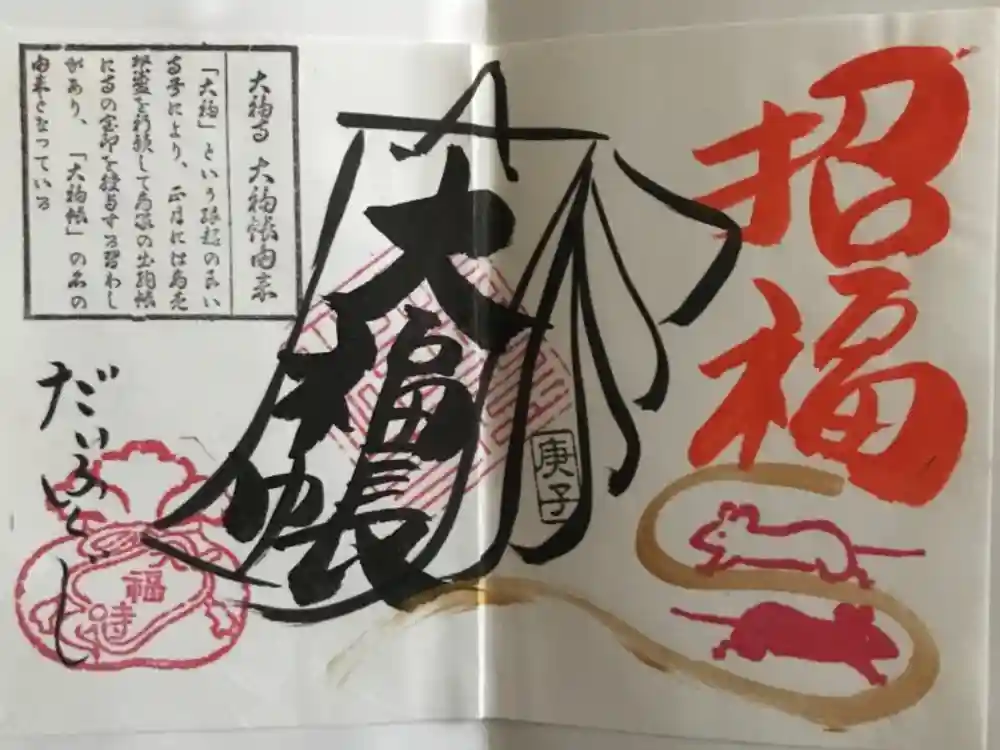 招福
大福帳
庚子
大福寺 大福帳由来
「大福」という縁起の良い
寺号により、正月には商売
繁盛を祈願して商家の出納帳
に寺の宝印を授与する習わし
があり、「大福帳」の名の
由来となっている
だいふくじ
大福
寺